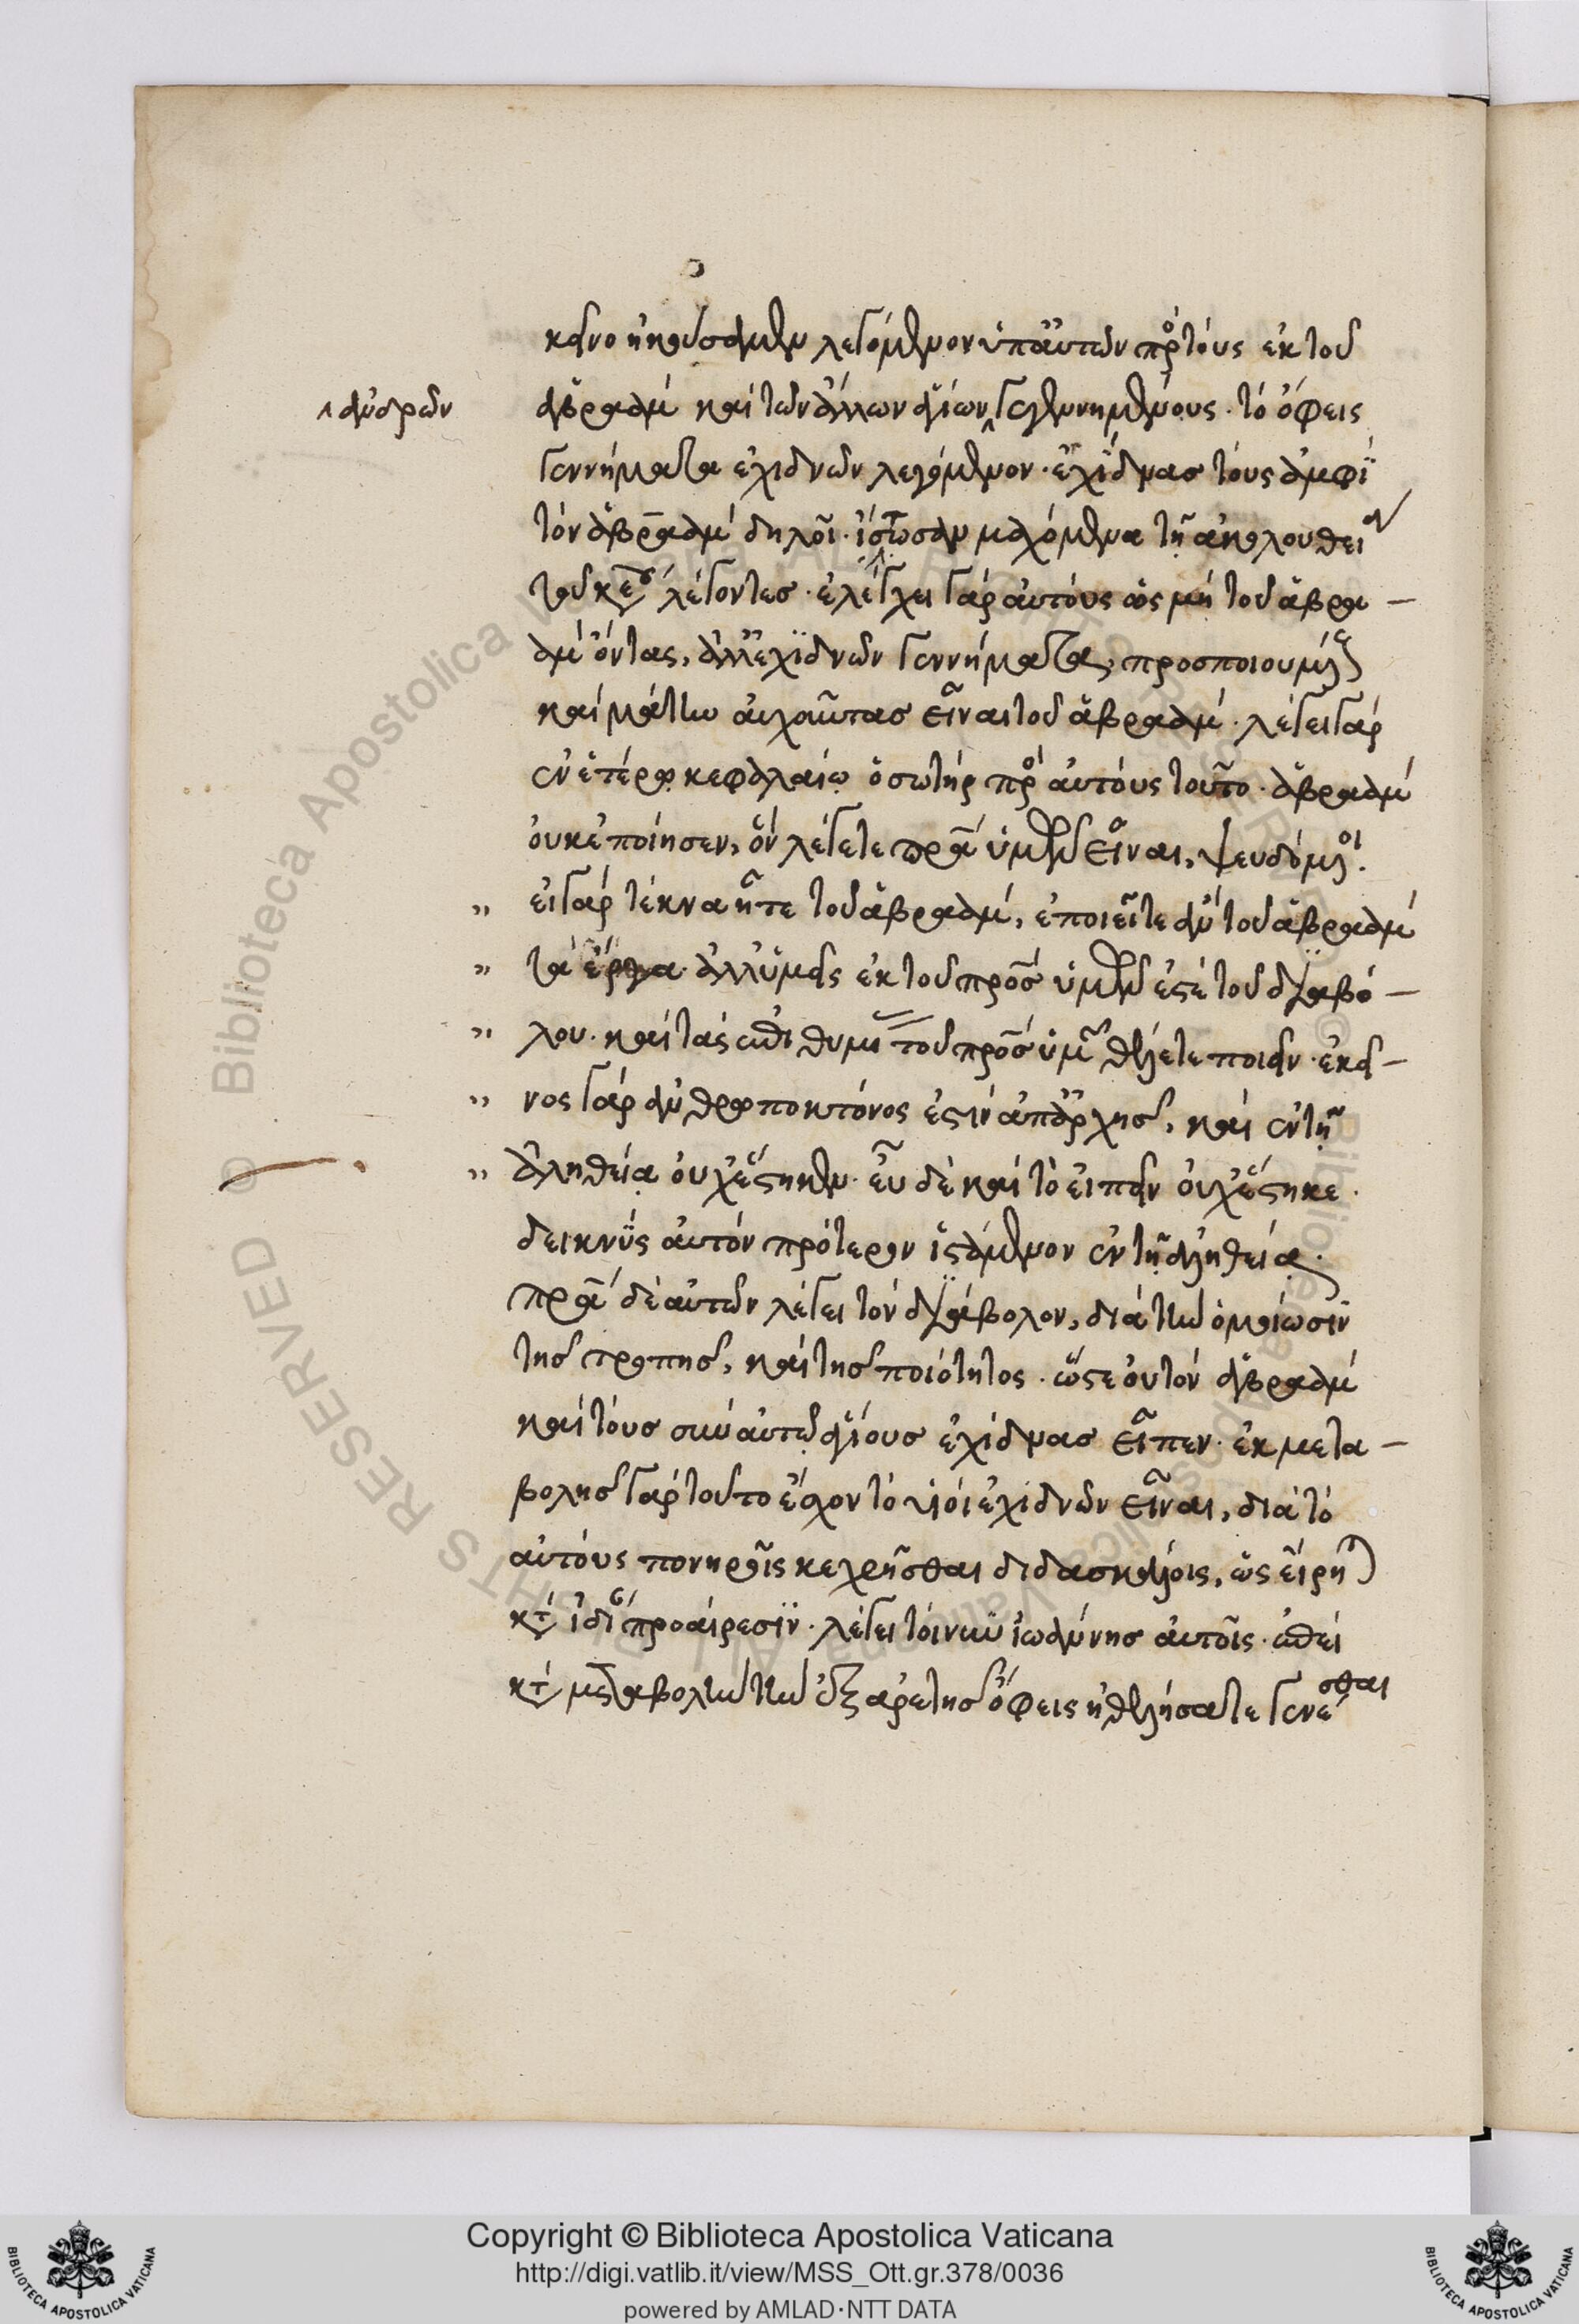 κεῖνο ἠκούσαμεν λεγόμενον ὑπ' αὐτῶν πρὸς τοὺς ἐκ τοῦ
ἀνδρῶν
ἀβραὰμ καὶ τῶν ἄλλων ἁγίων γεγεννημένους. τὸ ὄφεις
γεννήματα ἐχιδνῶν λεγόμενον. ἐχίδνας τοὺς ἀμφὶ
τὸν ἀβραὰμ δηλοῖ. ἴστωσαν μαχόμενα τῇ ἀκολουθείᾳ
τοῦ λέγοντες. ἐλέγχει γὰρ αὐτοὺς ὡς μὴ τοῦ ἀβρα-
ὰμ ὄντας, ἀλλ' ἐχιδνῶν γεννήματα, προσποιουμένους
καὶ μάτην αὐχοῦντας εἶναι τοῦ ἀβραάμ. λέγει γὰρ
ἐν ἑτέρῳ κεφαλαίῳ ὁ σωτὴρ πρὸς αὐτοὺς τοῦτο. ἀβραὰμ
οὐκ ἐποίησεν, ὃν λέγετε πατέρα ὑμῶν εἶναι, ψευδόμενοι.
" εἰ γὰρ τέκνα ἦτε τοῦ ἀβραάμ, ἐποιεῖτε ἂν τοῦ ἀβραὰμ
" τὰ ἔργα. ἀλλ' ὑμεῖς ἐκ τοῦ πατρὸς ὑμῶν ἐστὲ τοῦ διαβό-
" λου. καὶ τὰς ἐπιθυμίας τοῦ πατρὸς ὑμῶν θέλετε ποιεῖν. ἐκεῖ-
" νος γὰρ ἀνθρωποκτόνος ἐστὶν ἀπ' ἀρχῆς, καὶ ἐν τῇ
" ἀληθείᾳ οὐχ ἕστηκεν. εὖ δὲ καὶ τὸ εἰπεῖν οὐχ ἕστηκε.
δεικνὺς αὐτὸν πρότερον ἱστάμενον ἐν τῇ ἀληθείᾳ.
πατέρα δὲ αὐτῶν λέγει τὸν διάβολον, διὰ τὴν ὁμοίωσιν
τῆς τροπῆς, καὶ τῆς ποιότητος. ὥστε οὐ τὸν ἀβραὰμ
καὶ τοὺς σὺν αὐτῷ ἁγίους ἐχίδνας εἶπεν. ἐκ μετα-
βολῆς γὰρ τοῦτο ἔσχον τὸ υἱοὶ ἐχιδνῶν εἶναι, διὰ τὸ
αὐτοὺς πονηροῖς κεχρῆσθαι διδασκάλοις, ὡς εἴρηται
κατ' ἰδίαν προαίρεσιν. λέγει τοίνυν ἰωάννης αὐτοῖς. ἐπεὶ
κατὰ μεταβολὴν τὴν ἐξ ἀρετῆς ὄφεις ἠθελήσατε γενέσθαι
Copyright © Biblioteca Apostolica Vaticana
http://digi.vatlib.it/view/MSS_Ott.gr.378/0036
powered by AMLAD·NTT DATA